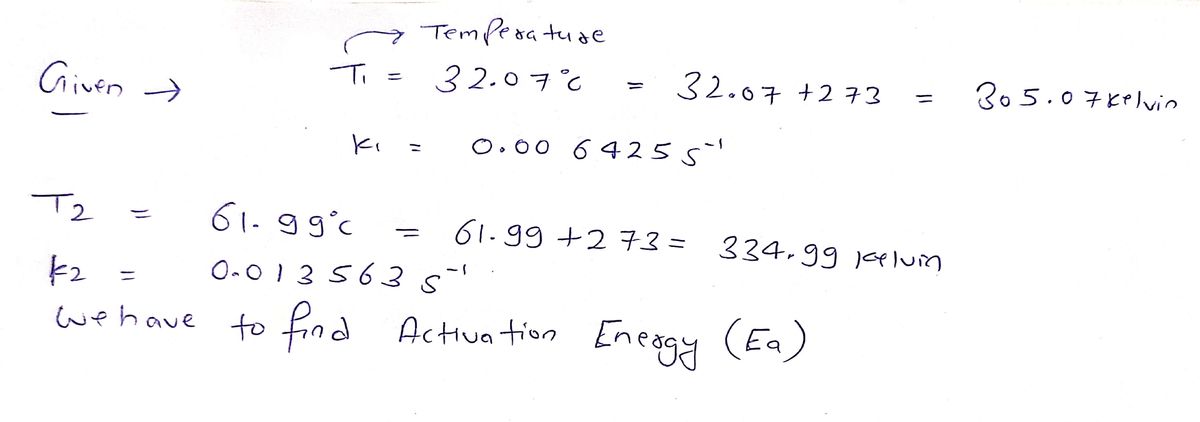 → Temperature
Given → T1 = 32.07°C = 32.07 + 273 = 305.07 Kelvin
K1 = 0.006425 s⁻¹
T2 = 61.99°C = 61.99 + 273 = 334.99 Kelvin
k2 = 0.013563 s⁻¹
We have to find Activation Energy (Ea)